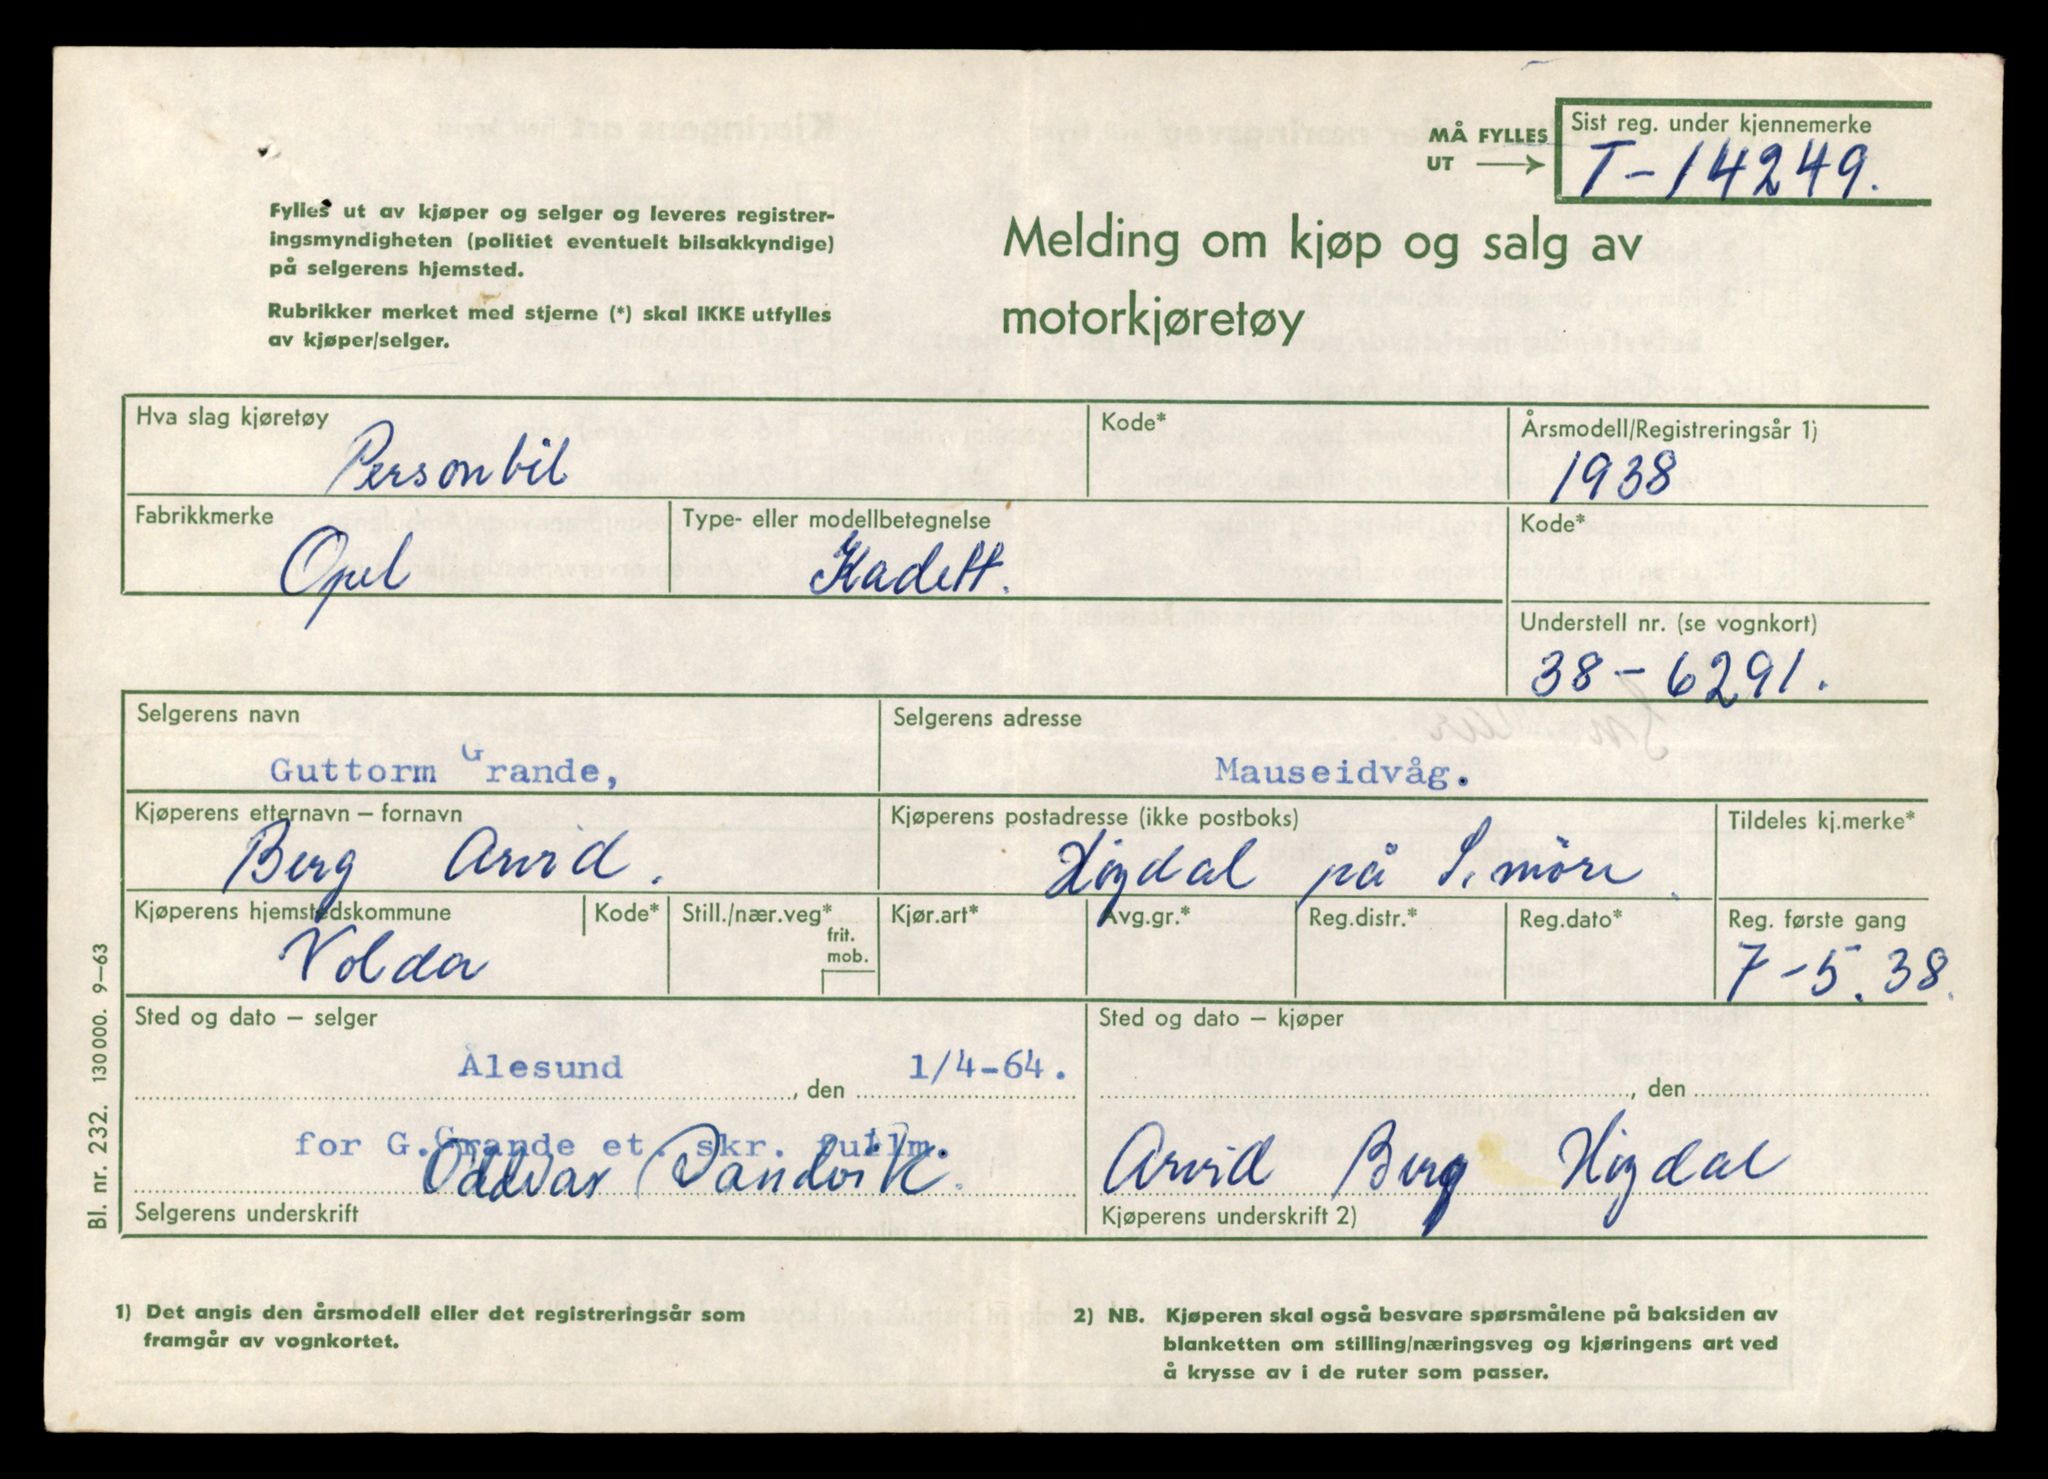 MÅ FYLLES UT → Sist reg. under kjennemerke
T-14249.
Fylles ut av kjøper og selger og leveres registrer-
ingsmyndigheten (politiet eventuelt bilsakkyndige)
på selgerens hjemsted.
Rubrikker merket med stjerne (*) skal IKKE utfylles
av kjøper/selger.
Melding om kjøp og salg av
motorkjøretøy
Hva slag kjøretøy
Personbil
Kode*
Årsmodell/Registreringsår 1)
1938
Fabrikkmerke
Opel
Type- eller modellbetegnelse
Kadett.
Kode*
Understell nr. (se vognkort)
38-6291.
Selgerens navn
Guttorm Grande,
Selgerens adresse
Mauseidvåg.
Kjøperens etternavn – fornavn
Berg Arvid.
Kjøperens postadresse (ikke postboks)
Høydal på S. möre.
Tildeles kj.merke*
Kjøperens hjemstedskommune
Volda
Kode*
Still./nær.veg*
frit.
mob.
Kjør.art*
Avg.gr.*
Reg.distr.*
Reg.dato*
Reg. første gang
7-5.38.
Sted og dato – selger
Ålesund, den 1/4-64.
for G.Grande et. skr. fullm.
Oddvar Sandvik.
Selgerens underskrift
Sted og dato – kjøper
, den
Arvid Berg Høydal
Kjøperens underskrift 2)
Bl. nr. 232. 130 000. 9–63
1) Det angis den årsmodell eller det registreringsår som
framgår av vognkortet.
2) NB. Kjøperen skal også besvare spørsmålene på baksiden av
blanketten om stilling/næringsveg og kjøringens art ved
å krysse av i de ruter som passer.